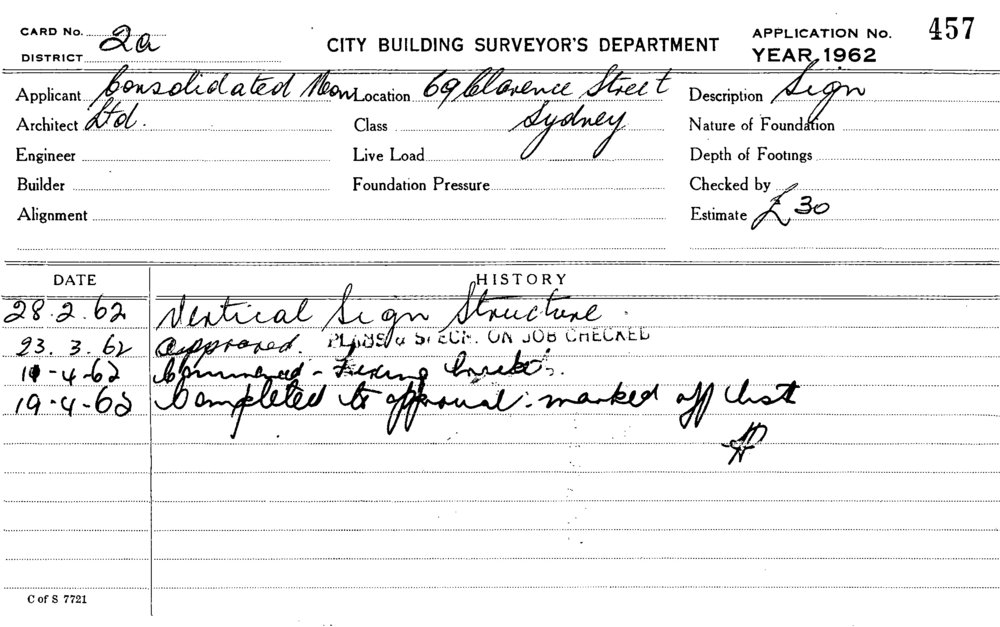 CARD No. 2a
DISTRICT
CITY BUILDING SURVEYOR'S DEPARTMENT
APPLICATION No. 457
YEAR 1962
Applicant Consolidated Neon Location 69 Clarence Street Description Sign
Architect Ltd. Class Sydney Nature of Foundation
Engineer Live Load Depth of Footings
Builder Foundation Pressure Checked by
Alignment Estimate £30
DATE HISTORY
28.2.62 Vertical Sign Structure.
23.3.62 Approved. PLANS & SPECN. ON JOB CHECKED
11-4-62 Commenced - Fixing
19-4-62 Completed to approval. marked off list
C of S 7721